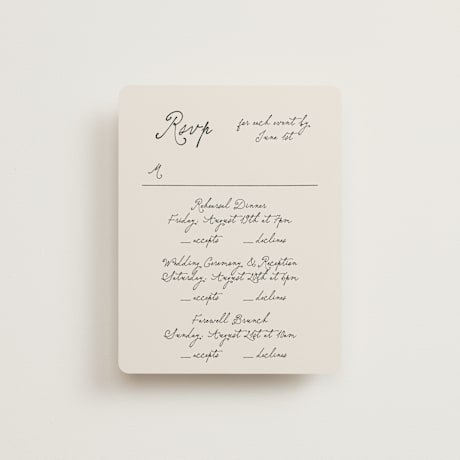 Rsvp
for each event by
June 1st
M
Rehearsal Dinner
Friday, August 19th at 7pm
_accepts _declines
Wedding Ceremony & Reception
Saturday, August 20th at 6pm
_accepts _declines
Farewell Brunch
Sunday, August 21st at 10am
_accepts _declines